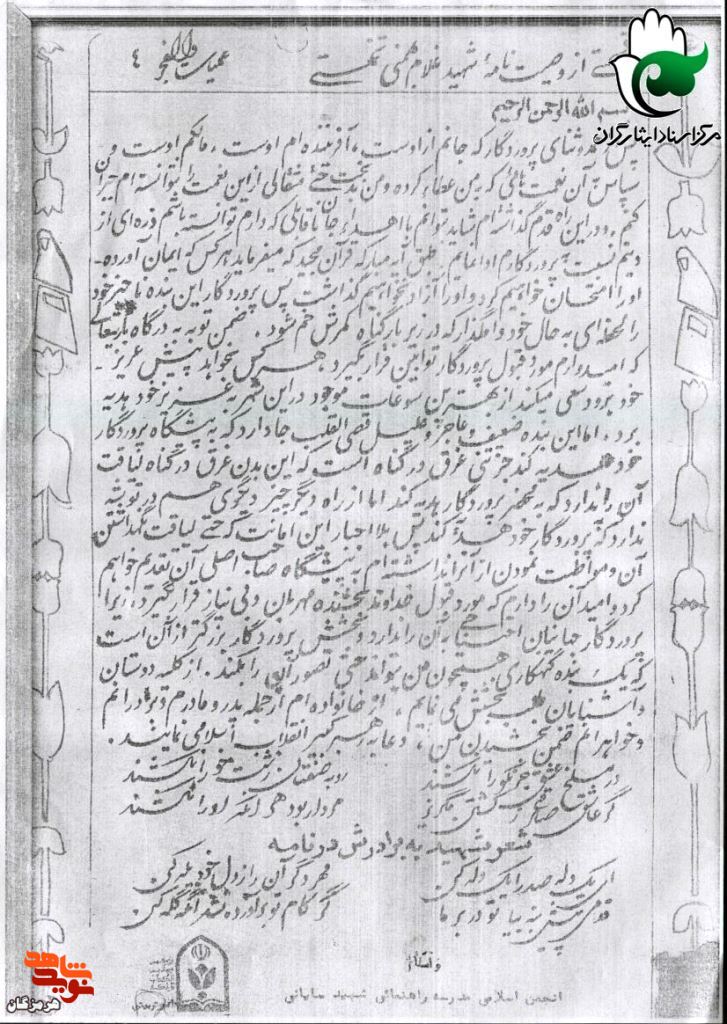 قسمتی از وصیت نامهٔ شهید غلام بهمنی تختی عملیات والفجر ۴
مرکز اسناد ایثارگران
بسم الله الرحمن الرحیم
پس حمد و ثنای پروردگار که جانم از اوست ، آفریننده ام اوست ، مالکم اوست و من
سپاس آن نعمت هائی که به من عطا کرده و من بدبخت حتی مثقالی از این نعمت را نتوانسته ام جبران
کنم . و در این راه قدم گذاشته ام شاید بتوانم با اهداء جان ناقابلی که دارم توانسته باشم ذره ای از
دینم نسبت به پروردگارم ادا نمایم . طبق آیه مبارکه قرآن مجید که میفرماید هر کس که ایمان آورده
او را امتحان خواهیم کرد و او را آزاد نخواهیم گذاشت پس پروردگار این بنده ناچیز خود
را لحظه ای به حال خود وامگذار که در زیر بار گناه کمرش خم شود . ضمن توبه به درگاه باریتعالی
که امیدوارم مورد قبول پروردگار توابین قرار بگیرد ، هر کس بخواهد پیش عزیز
خود برود سعی میکند از بهترین سوغات موجود در این شهر به عزیز خود هدیه
برد . اما این بنده ضعیف و عاجز و ذلیل قصی القلب چه دارد که به پیشگاه پروردگار
خود هدیه کند جز تنی غرق در گناه است که این بدن غرق در گناه لیاقت
آن را ندارد که به محضر پروردگار هدیه کند اما از راه دیگر چیز دیگری هم در توشه
ندارد که پروردگار خود هدیه کند پس بالاجبار این امانت که حتی لیاقت نگهداشتن
آن و مواظبت نمودن از آنرا نداشته ام به پیشگاه صاحب اصلی آن تقدیم خواهم
کرد و امید آن را دارم که مورد قبول خداوند بخشنده مهربان و بی نیاز قرار گیرد ، زیرا
پروردگار جهانیان احتیاجی به آن را ندارد و بخشش پروردگار بزرگتر از آن است
که یک بنده گنهکاری همچون من بتواند حتی تصور آن را بکند . از کلیه دوستان
و آشنایان طلب بخشش می نمایم ، از خانواده ام از جمله پدر و مادرم و برادرانم
و خواهرانم ضمن بخشیدن من ، دعا به رهبر کبیر انقلاب اسلامی نمایند .
در مسلخ عشق جز نکو را نکشند روبه صفتان زشت خو را نکشند
گر عاشق صادقی ز کشتن مگریز مردار بود هر آنکه او را نکشند
شعر شهید به برادرش در نامه
ای یک دله صد دله دل یک دله کن مهر دگران را ز دل خود یله کن
قدمی پیش بنه بیا تو در بر ما گر کام تو بر آورده نشد آنگه گله کن
والسلام
انجمن اسلامی مدرسه راهنمائی شهید سایبانی
نوید شاهد
هرمزگان